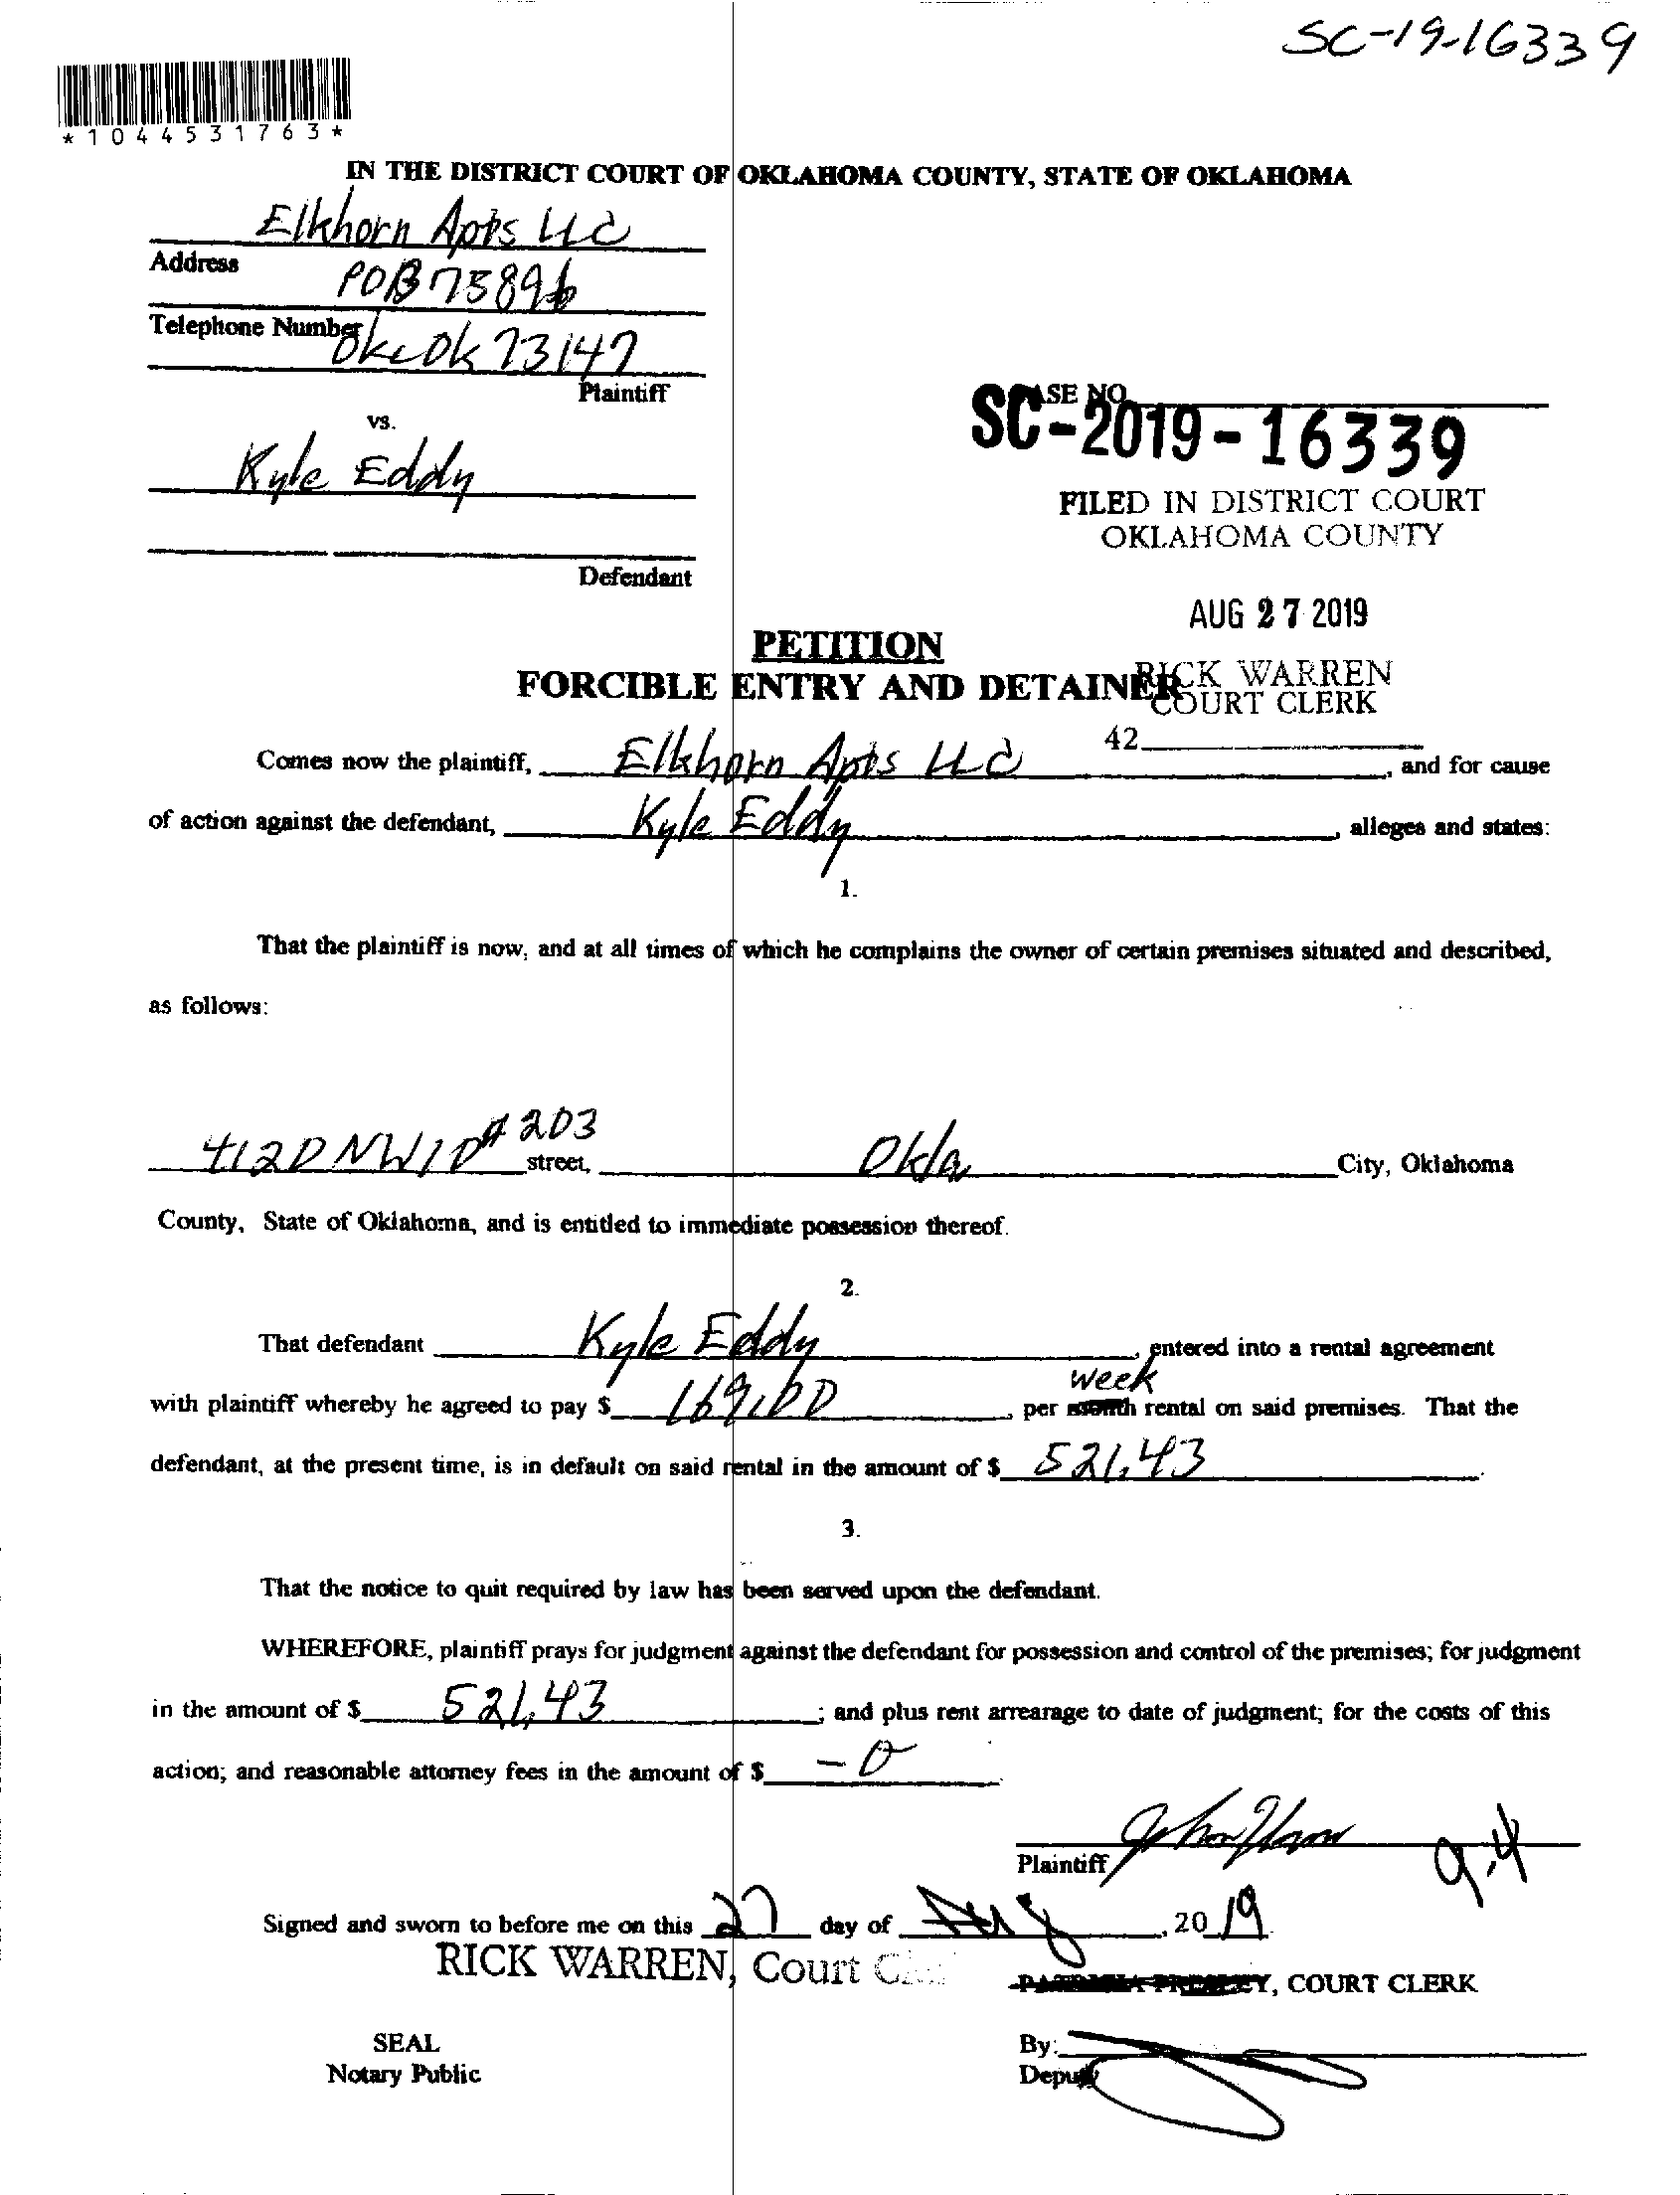 SC-19-16339
*1044531763*
IN THE DISTRICT COURT OF OKLAHOMA COUNTY, STATE OF OKLAHOMA
Elkhorn Apts LLC
Address
POB 75896
Telephone Number
Okc Ok 73147
Plaintiff
vs.
CASE NO.
SC-2019-16339
Kyle Eddy
FILED IN DISTRICT COURT
OKLAHOMA COUNTY
Defendant
AUG 27 2019
PETITION
FORCIBLE ENTRY AND DETAINER
RICK WARREN
COURT CLERK
42
Comes now the plaintiff, Elkhorn Apts LLC, and for cause
of action against the defendant, Kyle Eddy, alleges and states:
1.
That the plaintiff is now, and at all times of which he complains the owner of certain premises situated and described,
as follows:
4120 NW 10 #203 street, Okla City, Oklahoma
County, State of Oklahoma, and is entitled to immediate possession thereof.
2.
That defendant Kyle Eddy, entered into a rental agreement
week
with plaintiff whereby he agreed to pay $ 169.00, per month rental on said premises. That the
defendant, at the present time, is in default on said rental in the amount of $ 521.43.
3.
That the notice to quit required by law has been served upon the defendant.
WHEREFORE, plaintiff prays for judgment against the defendant for possession and control of the premises; for judgment
in the amount of $ 521.43; and plus rent arrearage to date of judgment; for the costs of this
action; and reasonable attorney fees in the amount of $ -0
Plaintiff
9.4
Signed and sworn to before me on this 27 day of Aug, 2019.
RICK WARREN, Court
PATRICIA PRESLEY, COURT CLERK
SEAL
Notary Public
By:
Deputy